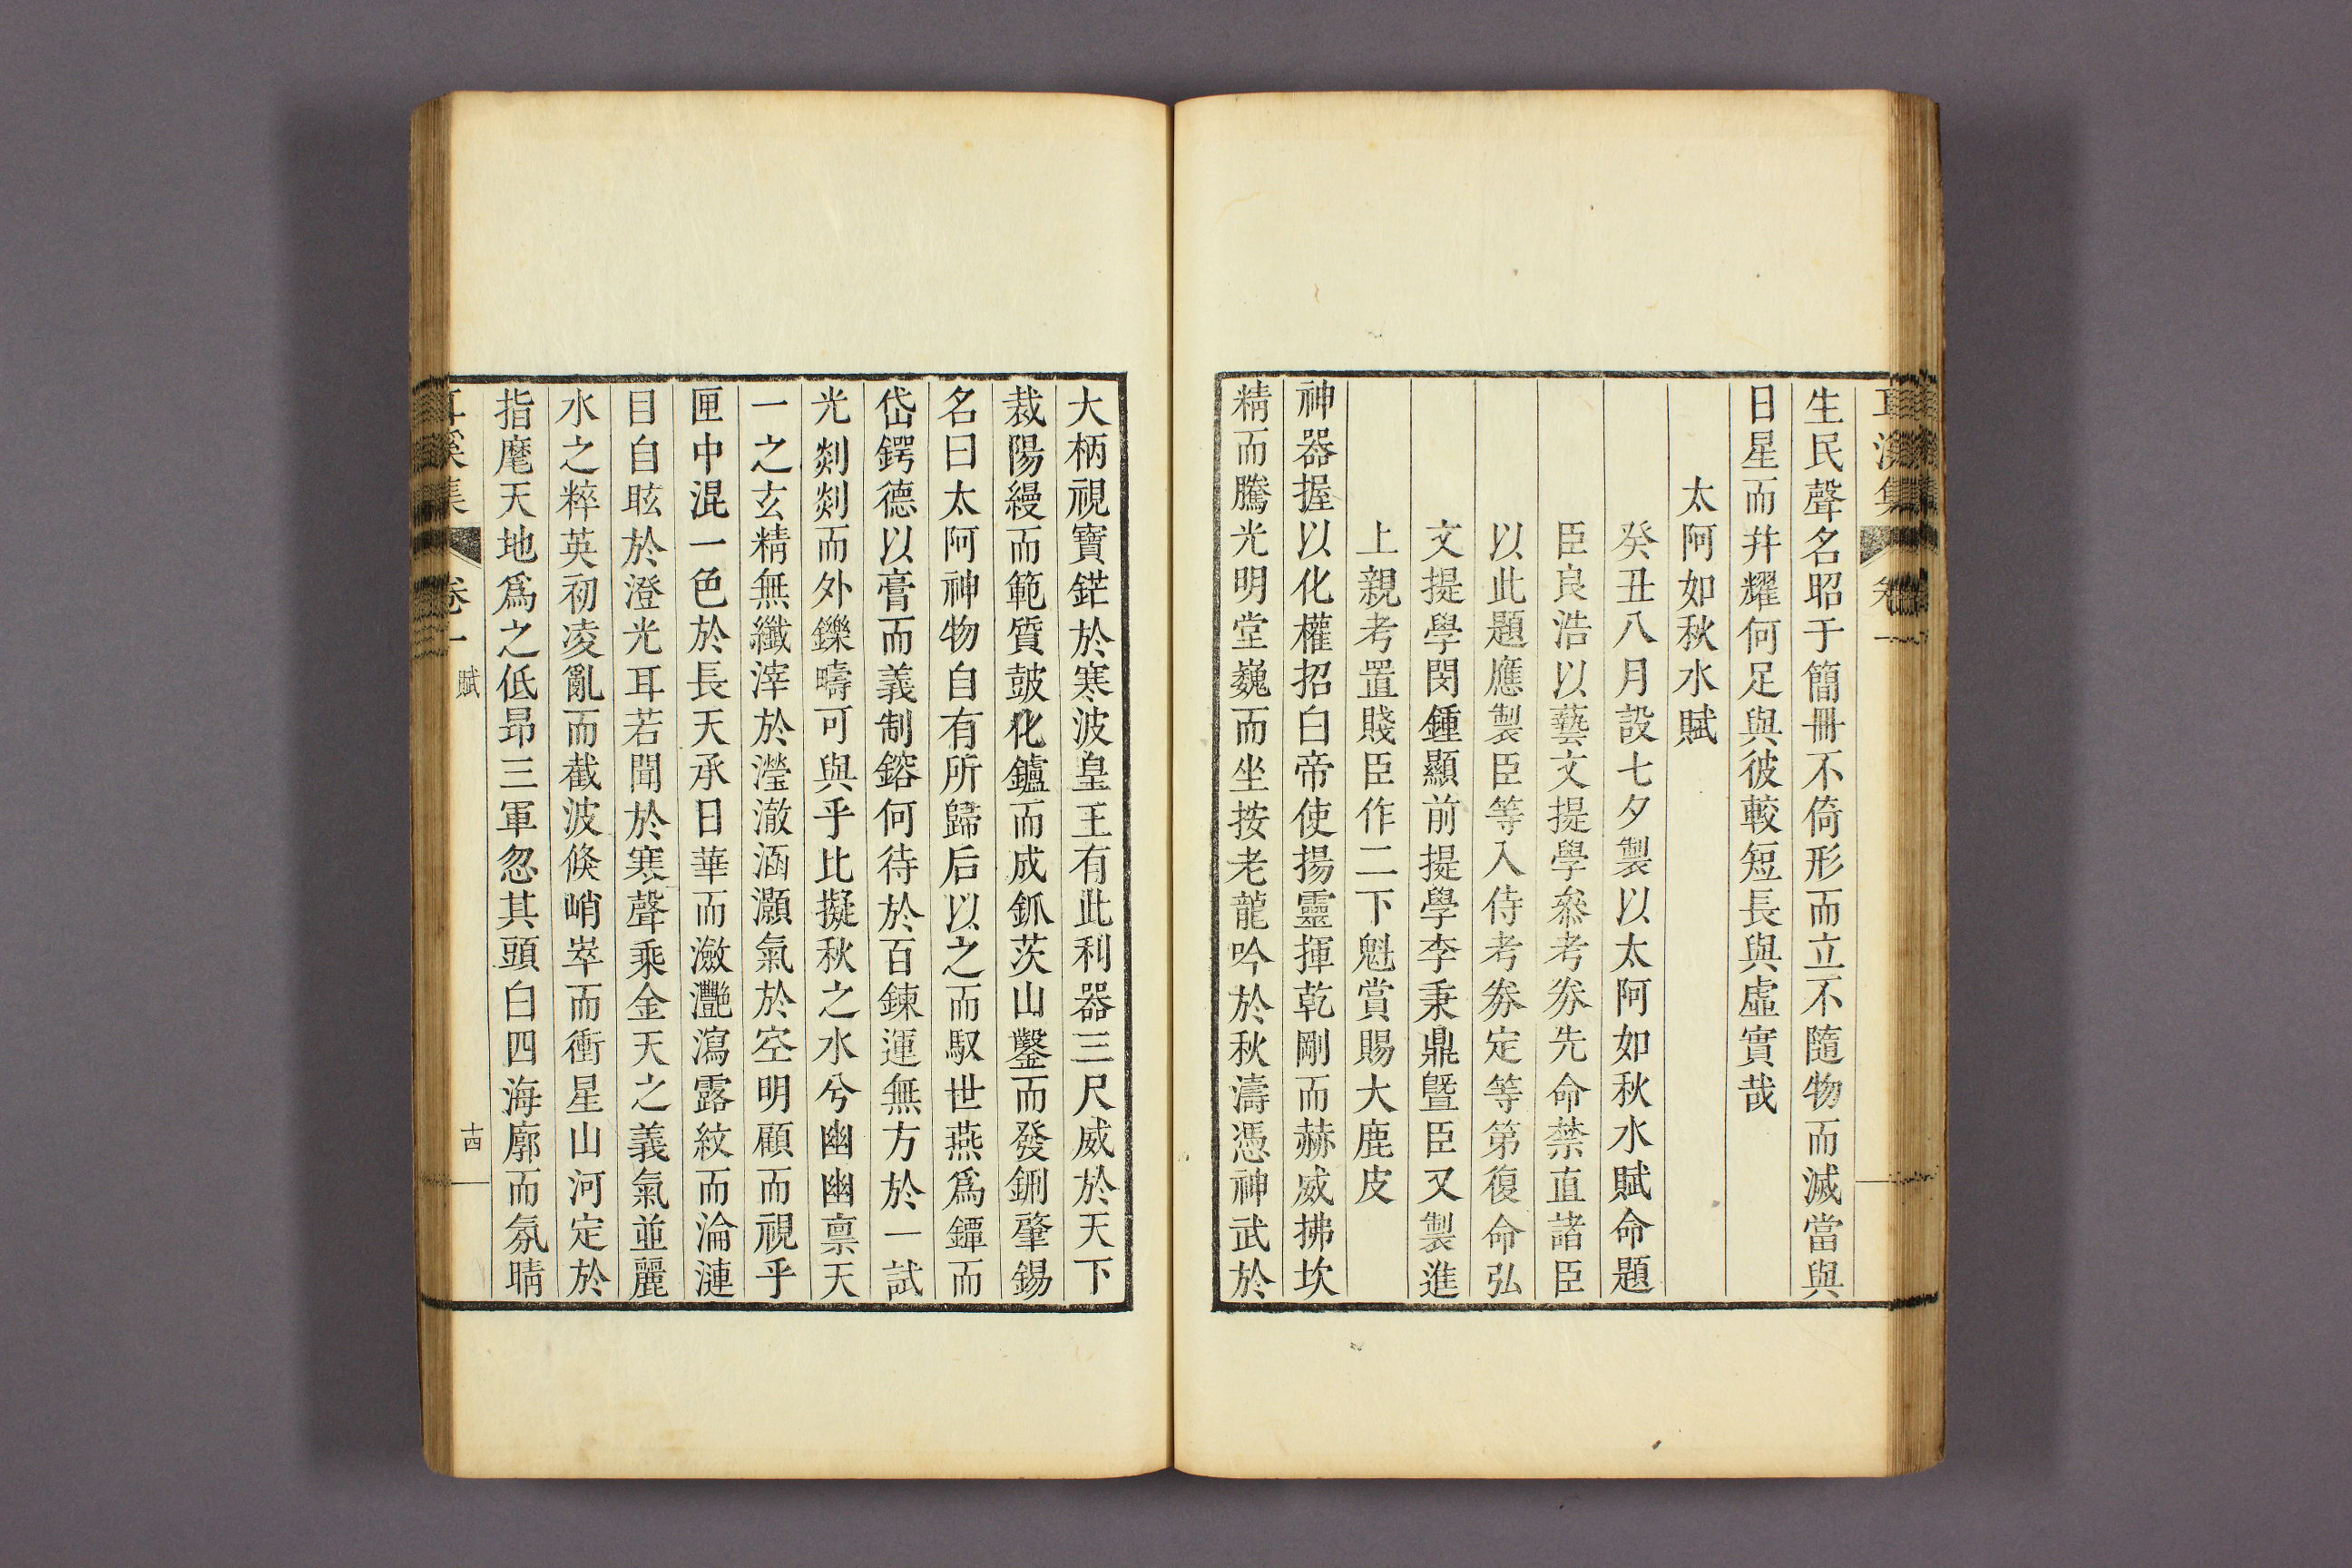 耳溪集 卷一
生民聲名昭于簡冊不倚形而立不隨物而滅當與
日星而幷耀何足與彼較短長與虛實哉
太阿如秋水賦
癸丑八月設七夕製以太阿如秋水賦命題
臣良浩以藝文提學叅考券先命禁直諸臣
以此題應製臣等入侍考券定等第復命弘
文提學閔鍾顯前提學李秉鼎曁臣又製進
上親考置賤臣作二下魁賞賜大鹿皮
神器握以化權招白帝使揚靈揮乾剛而赫威拂坎
精而騰光明堂巍而坐按老龍吟於秋濤憑神武於
大柄視寶鋩於寒波皇王有此利器三尺威於天下
裁陽縵而範質鼓化鑪而成釽茨山鑿而發鉶肇錫
名曰太阿神物自有所歸后以之而馭世燕爲鐔而
岱鍔德以膏而義制鎔何待於百鍊運無方於一試
光剡剡而外鑠疇可與乎比擬秋之水兮幽幽禀天
一之玄精無纖滓於瀅澈涵灝氣於空明顧而視乎
匣中混一色於長天承日華而瀲灩瀉露紋而淪漣
目自眩於澄光耳若聞於寒聲乘金天之義氣並麗
水之粹英初凌亂而截波倏峭崒而衝星山河定於
指麾天地爲之低昂三軍忽其頭白四海廓而氛晴
耳溪集 卷一 賦 十四